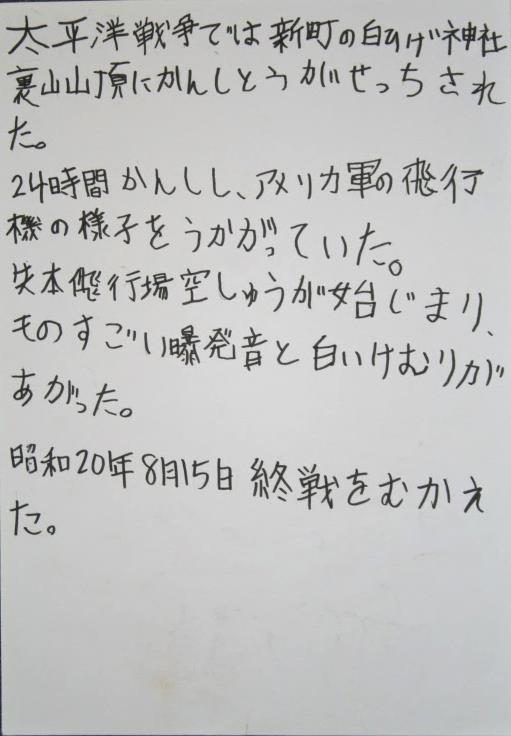 太平洋戦争では新町の白ひげ神社
裏山山頂にかんしとうがせっちされ
た。
24時間かんしし、アメリカ軍の飛行
機の様子をうかがっていた。
矢本飛行場空しゅうが始じまり、
ものすごい曝発音と白いけむりが
あがった。
昭和20年8月15日終戦をむかえ
た。